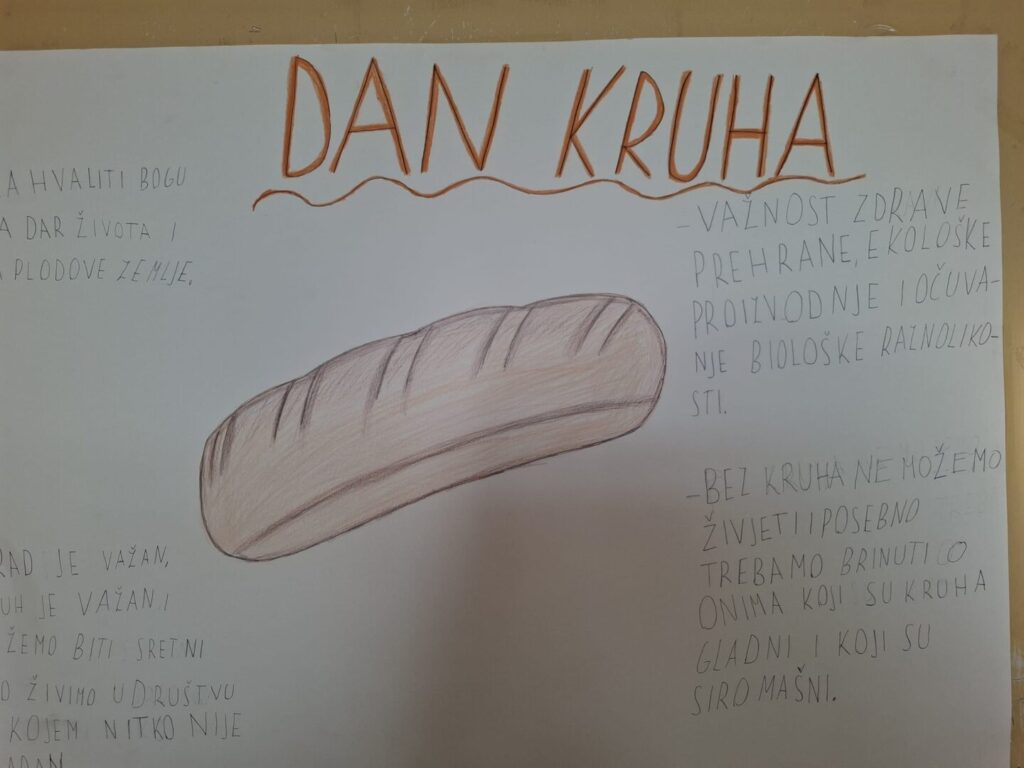 DAN KRUHA
A HVALITI BOGU
A DAR ŽIVOTA I
PLODOVE ZEMLJE.
- VAŽNOST ZDRAVE
PREHRANE, EKOLOŠKE
PROIZVODNJE I OČUVA-
NJE BIOLOŠKE RAZNOLIKO-
STI.
- BEZ KRUHA NE MOŽEMO
ŽIVJETI I POSEBNO
TREBAMO BRINUTI O
ONIMA KOJI SU KRUHA
GLADNI I KOJI SU
SIROMAŠNI.
RAD JE VAŽAN,
UH JE VAŽAN I
ŽEMO BITI SRETNI
O ŽIVIMO U DRUŠTVU
KOJEM NITKO NIJE